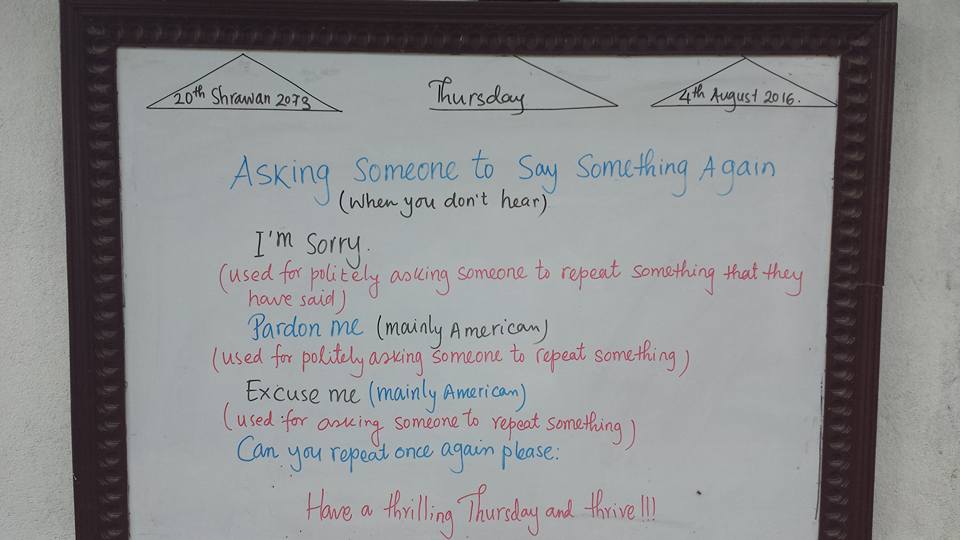 20th Shrawan 2073
Thursday
4th August 2016.
Asking Someone to Say Something Again
(When you don't hear)
I'm Sorry.
(used for politely asking someone to repeat something that they
have said)
Pardon me (mainly American)
(used for politely asking someone to repeat something)
Excuse me (mainly American)
(used for asking someone to repeat something)
Can you repeat once again please:
Have a thrilling Thursday and thrive!!!